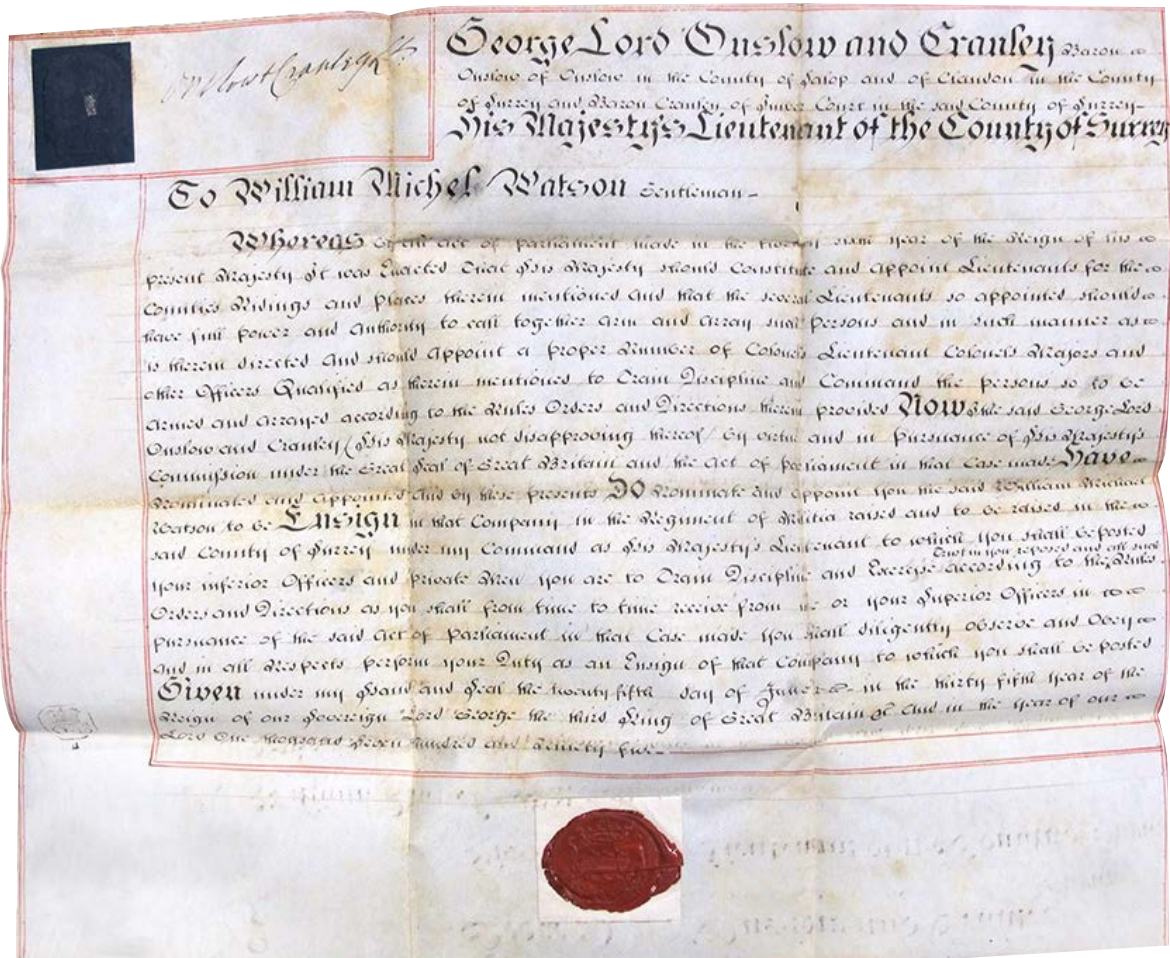 Onslow & Cranley Lt.
George Lord Onslow and Cranley Baron
Onslow of Onslow in the County of Salop and of Clandon in the County
of Surrey and Baron Cranley of Imber Court in the said County of Surrey
His Majesty's Lieutenant of the County of Surrey
To William Michel Watson Gentleman
Whereas by an Act of Parliament made in the twenty sixth year of the Reign of his
present Majesty It was Enacted That His Majesty should Constitute and appoint Lieutenants for the
Counties Ridings and Places therein mentioned And that the several Lieutenants so appointed should
have full Power and Authority to call together Arm and Array such Persons and in such manner as
is therein directed And should Appoint a Proper Number of Colonels Lieutenant Colonels Majors and
other Officers Qualified as therein mentioned to Train Discipline and Command the Persons so to be
Armed and Arrayed according to the Rules Orders and Directions therein provided Now I the said George Lord
Onslow and Cranley (His Majesty not disapproving thereof) by virtue and in Pursuance of His Majesty's
Commission under the Great Seal of Great Britain and the Act of Parliament in that Case made Have
Nominated and Appointed And by these Presents DO Nominate and Appoint you the said William Michael
Watson to be Ensign in that Company in the Regiment of Militia raised and to be raised in the
said County of Surrey under my Command as His Majesty's Lieutenant to which you shall be posted
Trust in you reposed and all such
your inferior Officers and private Men you are to Train Discipline and Exercise according to the Rules
Orders and Directions as you shall from time to time receive from me or your Superior Officers in
pursuance of the said Act of Parliament in that Case made you shall diligently observe and Obey
And in all Respects perform your Duty as an Ensign of that Company to which you shall be posted
Given under my Hand and Seal the twenty fifth day of June in the thirty fifth year of the
Reign of our Sovereign Lord George the third King of Great Britain &c And in the Year of our
Lord One thousand Seven hundred and Ninety five